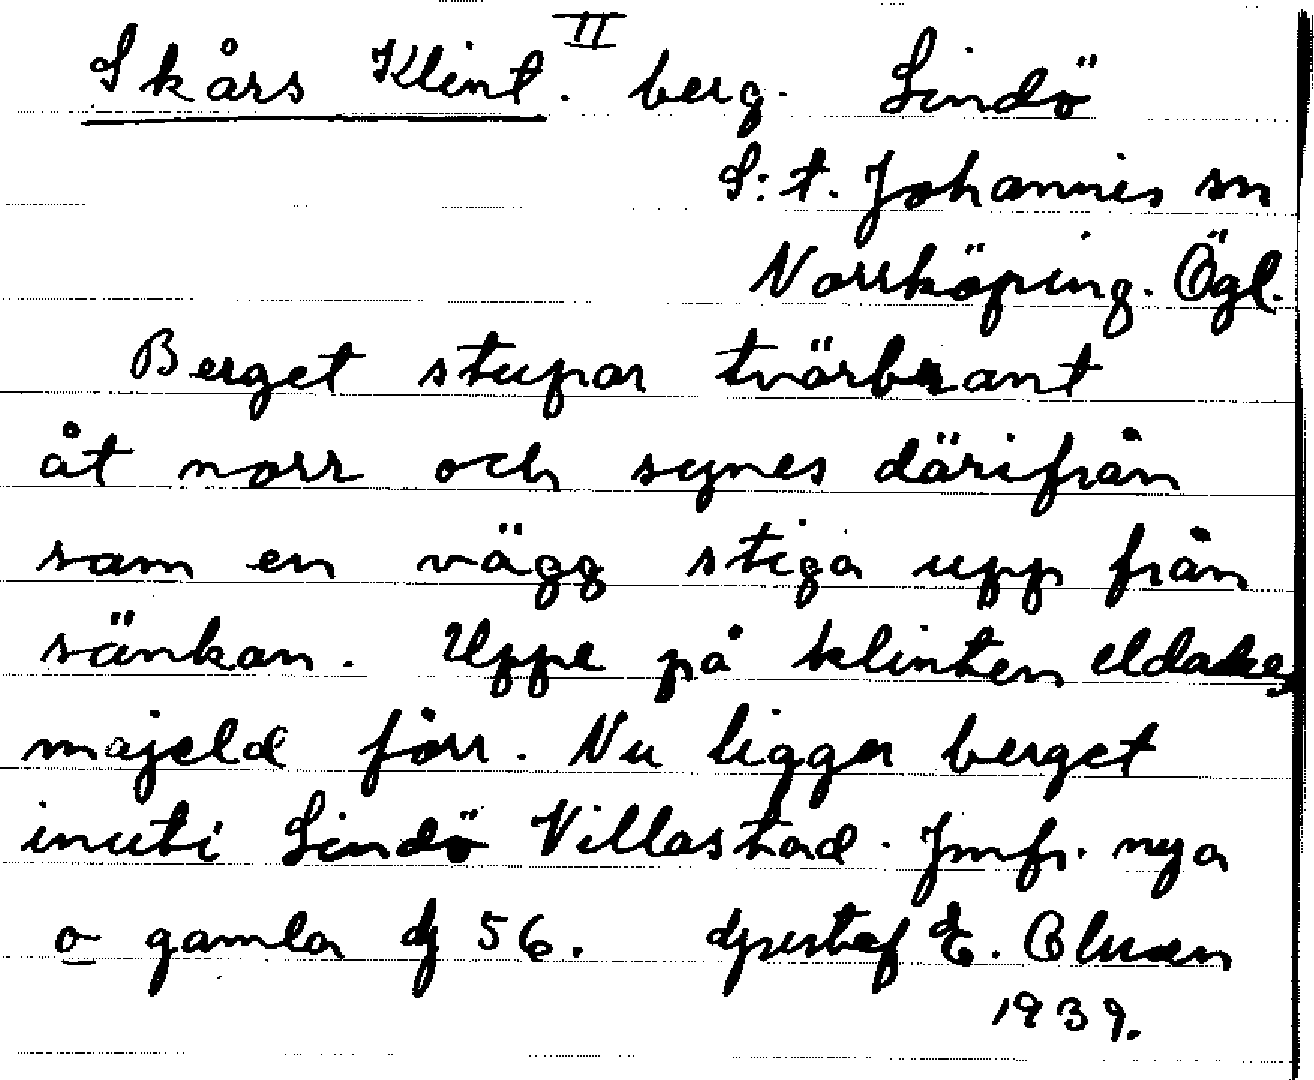 Skårs Klint. II berg. Lindö
S:t. Johannes sn
Norrköping. Ögl.
Berget stupar tvärbrant
åt norr och synes därifrån
som en vägg stiga upp från
sänkan. Uppe på klinten eldades
majeld förr. Nu ligger berget
inuti Lindö Villastad. Jmfr. nya
o gamla gj 56. Gustaf E.
1939.